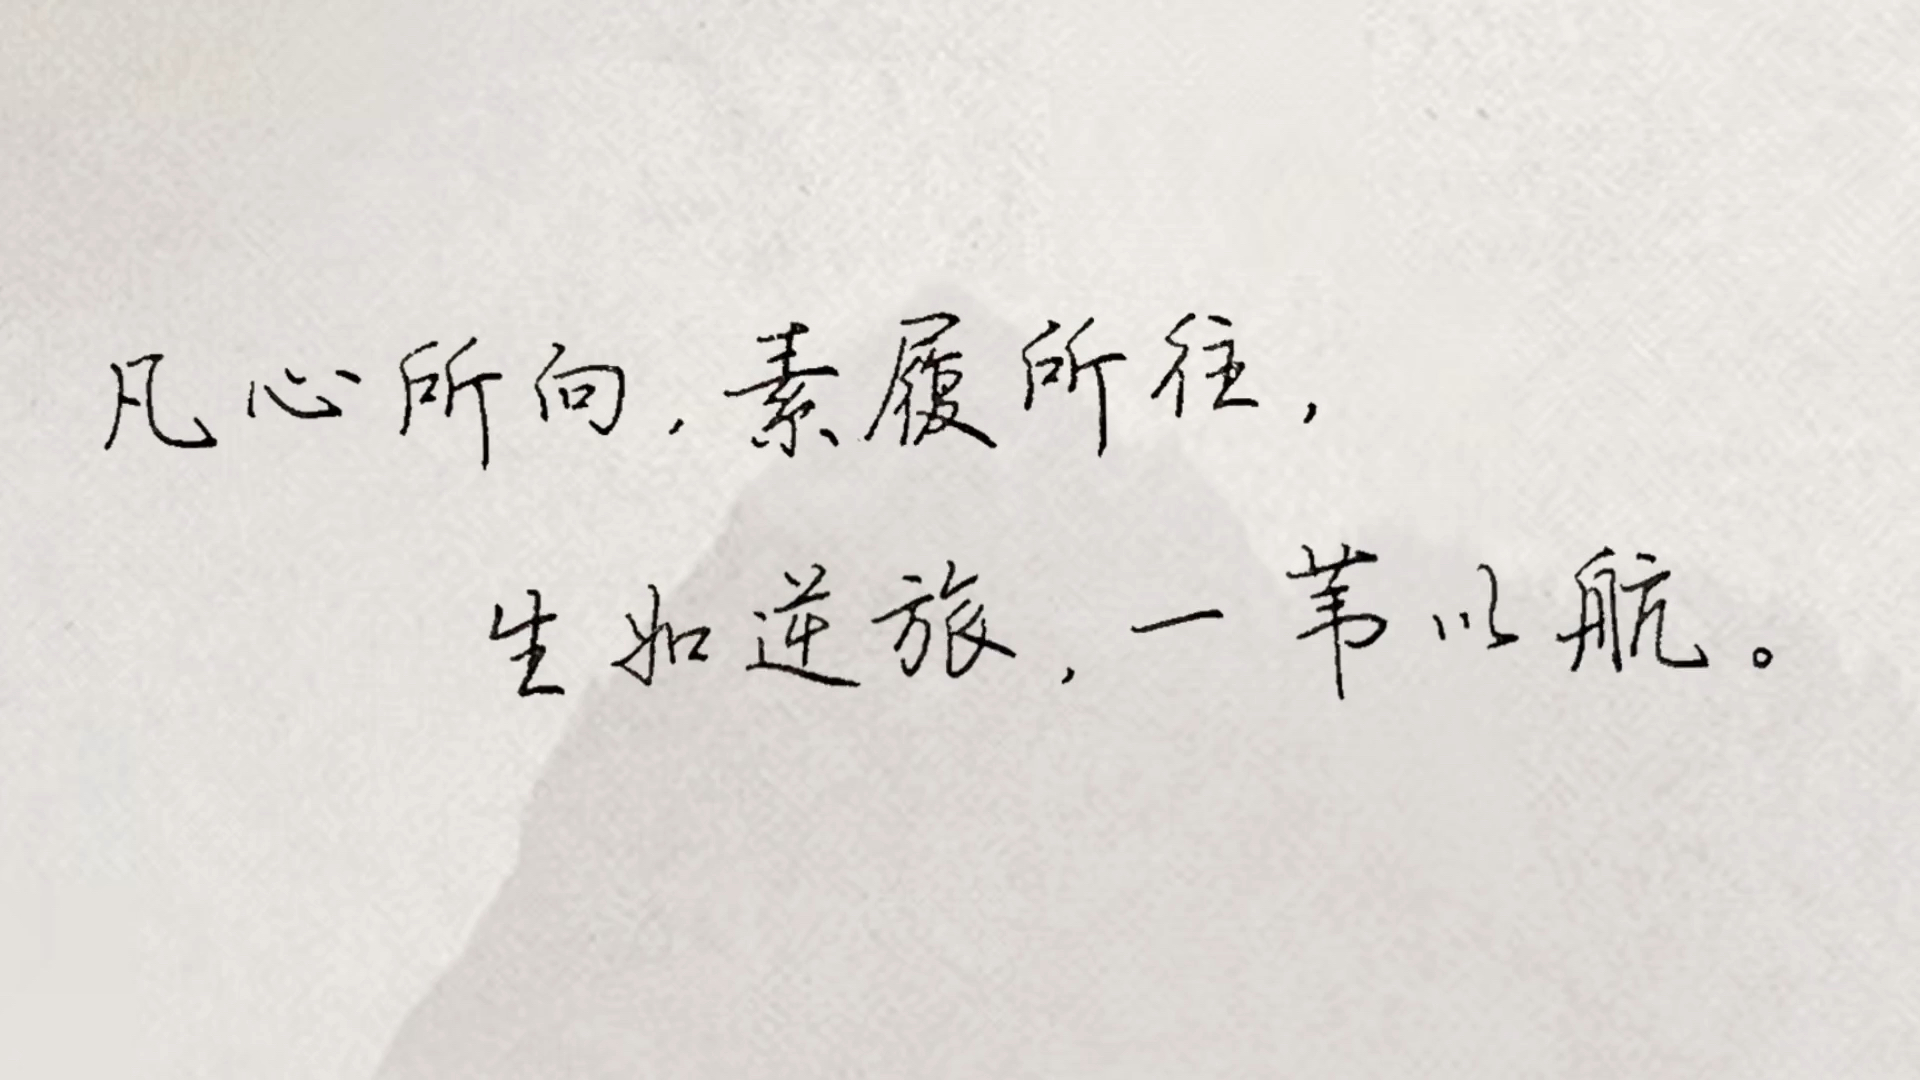 凡心所向，素履所往，
生如逆旅，一苇以航。